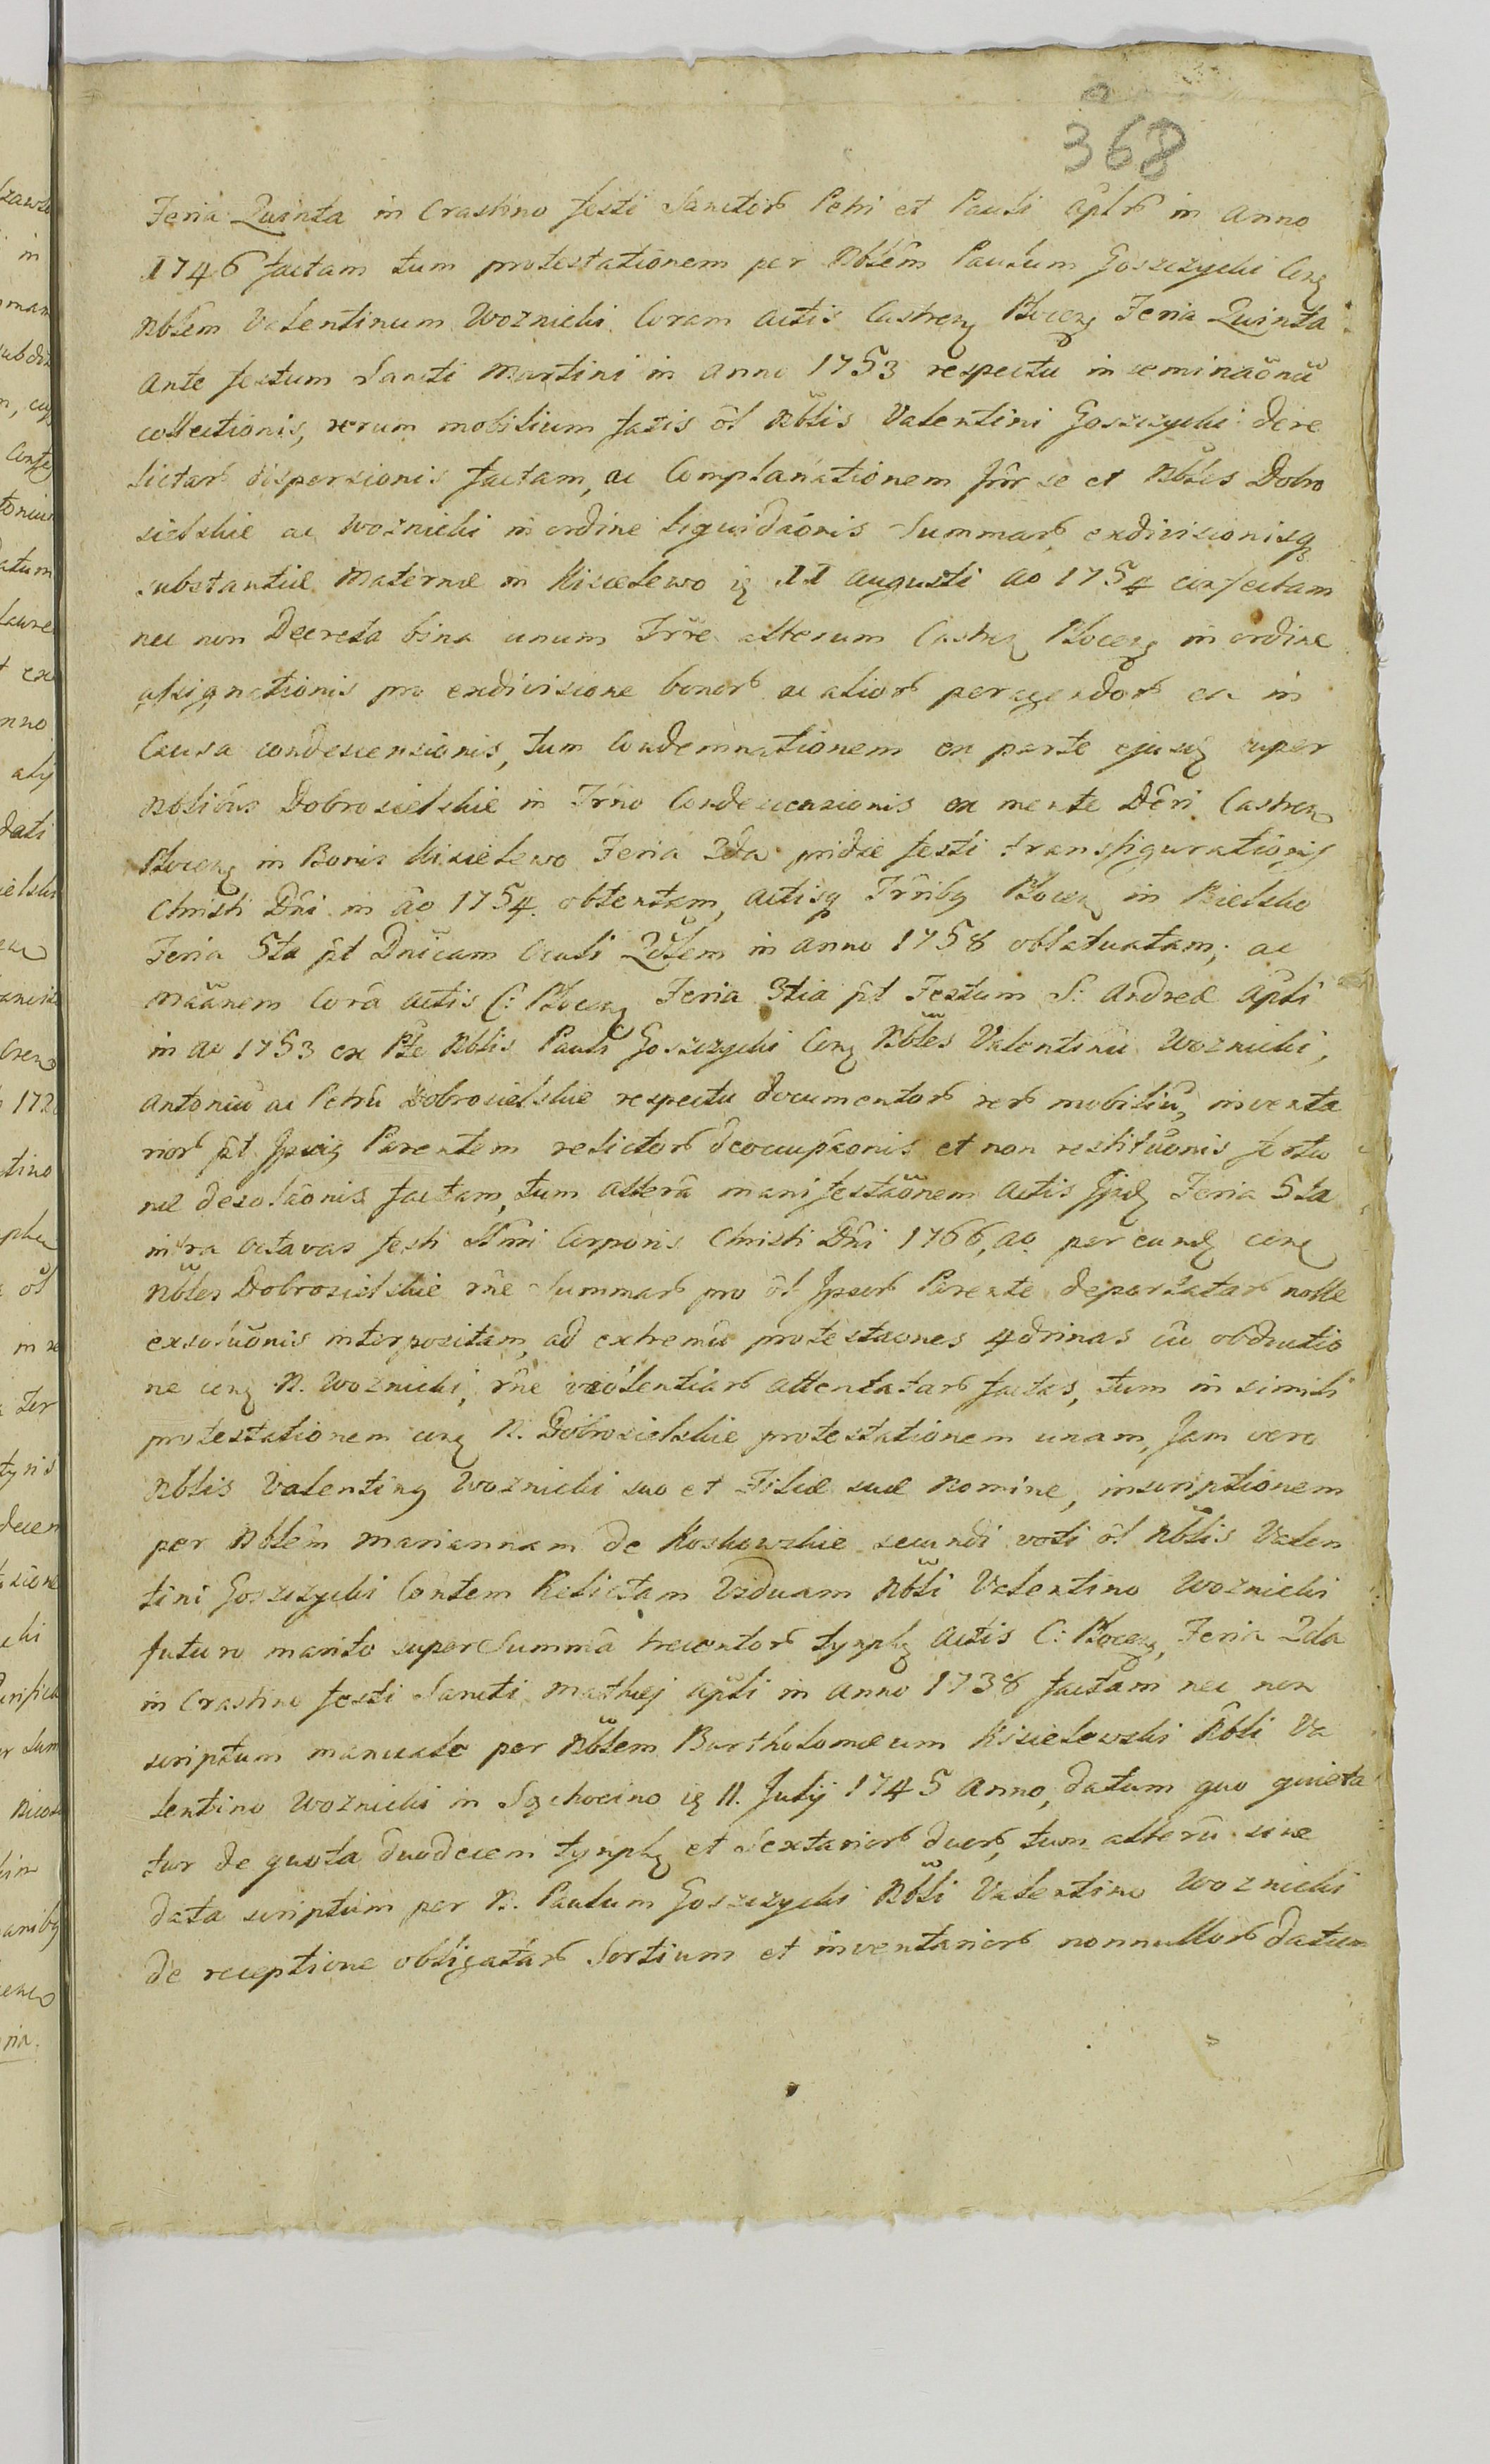 368
Feria Quinta in Crastino festi Sanctor Petri et Pauli aplr in anno
1746 factam tum protestationem per Nblem Paulum Goszczycki Conz
Nblem Valentinum Woznicki Coram actis Castren Plocenz Feria Quinta
ante festum Sancti Martini in anno 1753 respectu inseminaonu
collectionis, rerum mobilium fatis ol Nblis Valentini Goszczycki dere
lictar dispersionis factam, ac Complanationem Inr se et Nbles Dobro
sielskie ac Woznicki in ordine liquidaonis Summar exdivisionisq
substantiæ Maternæ in Kisielewo 11 augusti ao 1754 confectam
nec non Decreta bina unum Trre alterum Castren Plocenz in ordine
assignationis pro exdivisione bonor ac alior peragendor ex in
Causa condescensionis, tum Condemnationem ex parte ejusq super
Nblibus Dobrosielskie in Trno Condescensionis ex mente Dcri Castren
Plocenz in Bonis Kisielewo Feria 2da pridie festi transfigurationis
Christi Dni in ao 1754 obtentam, actisq Trribq Plocenz in Bielsko
Feria 5ta pt Dnicam Oculi Qdlem in anno 1758 oblatuatam; ac
maanem Cora actis C: Plocenz Feria 3tia pt Festum S: Andreæ apli
in ao 1753 ex Pte Nblis Pauli Goszczycki Conz Nbles Valentinu Woznicki,
Antoniu ac Petru Dobrosielskie respectu documentor rer mobiliu, inventa
rior pt Ipsiq Parentem relictor deoccupaonis et non restituonis fortu
næ desolaonis factam, tum altera manifestaonem actis Ijsd Feria 5ta
infra octavas festi SSmi Corporis Christi Dni 1766, ao per eund conz
Nbles Dobrosielskie rne Summar pro ol Ipsor Parente deportatar nolle
exsoluonis interpositam, ad extremu protestaones 4drinas cu obductio
ne conz N. Woznicki, rne violentiar attentatar factas, tum in simili
protestationem conz N. Dobrosielskie protestationem unam, Jam vero
Nblis Valentinq Woznicki suo et Filiæ suæ Nomine, inscriptionem
per Nblem Mariannam de Koskowskie secundi voti ol Nblis Valen
tini Goszczycki Contem Relictam Viduam Nbli Valentino Woznicki
futuro marito super Summa trecentor tynph actis C: Plocenz, Feria 2da
in Crastino festi Sancti Mathej apli in anno 1738 factam nec non
scriptum manuale per Nblem Bartholomæum Kisielewski Nbli Va
lentino Woznicki in Sochocino 11. Julij 1745 anno, datum quo quieta
tur de quota duodecem tynph et Sextarior duor, tum alteru sine
data scriptum per N. Paulum Goszczycki Nbli Valentino Woznicki
de receptione obligatar Sortium et inventarior nonnullor datum